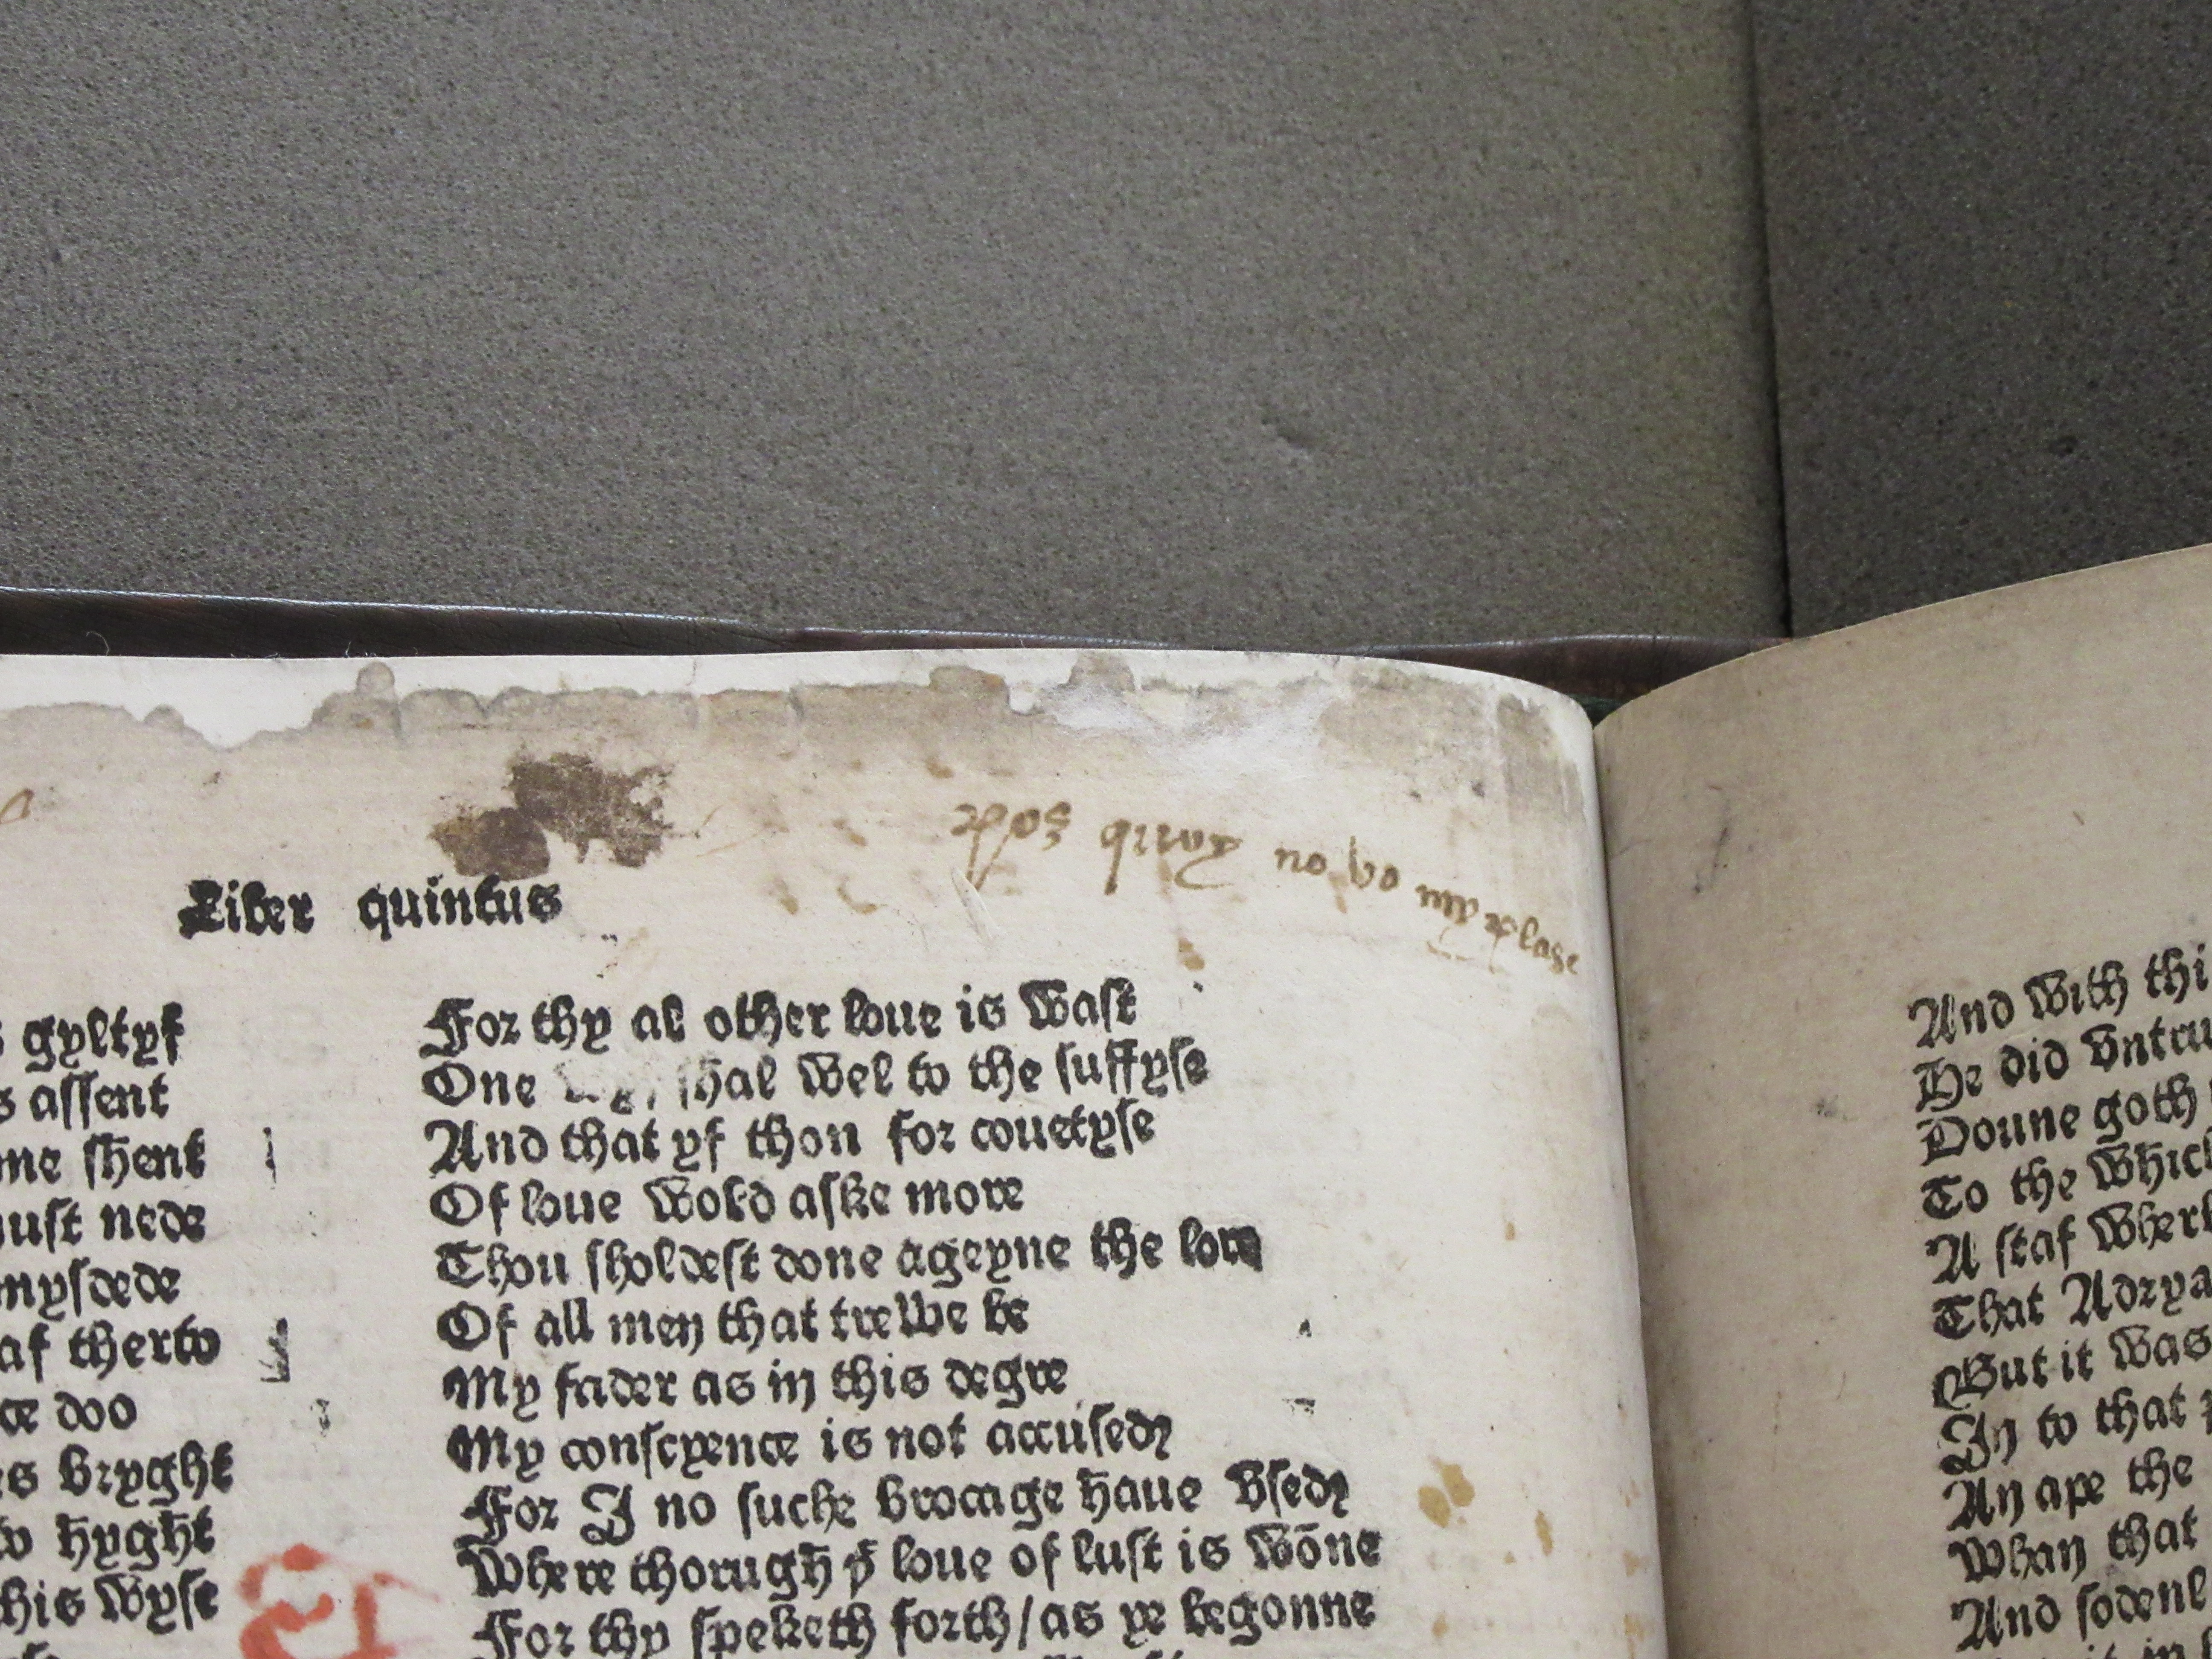 Liber quintus
gyltyf
s assent
me shent
must nede
mysdede
af therto
ce doo
es bryght
to hyght
this wyse
For thy al other loue is wast
One shal wel to the suffyse
And that yf thon for couetyse
Of loue wold aske more
Thou sholdest done ageyne the lore
Of all men that trewe be
My fader as in this degre
My conscyence is not accused
For I no suche brocage haue vsed
Where thorugh þͭ loue of lust is wōne
For thy speketh forth/as ye begonne
And with thi
He did vntru
Doune goth
To the which
A staf wherb
That Adrya
But it was
In to that
An ape the
Whan that
And sodenl